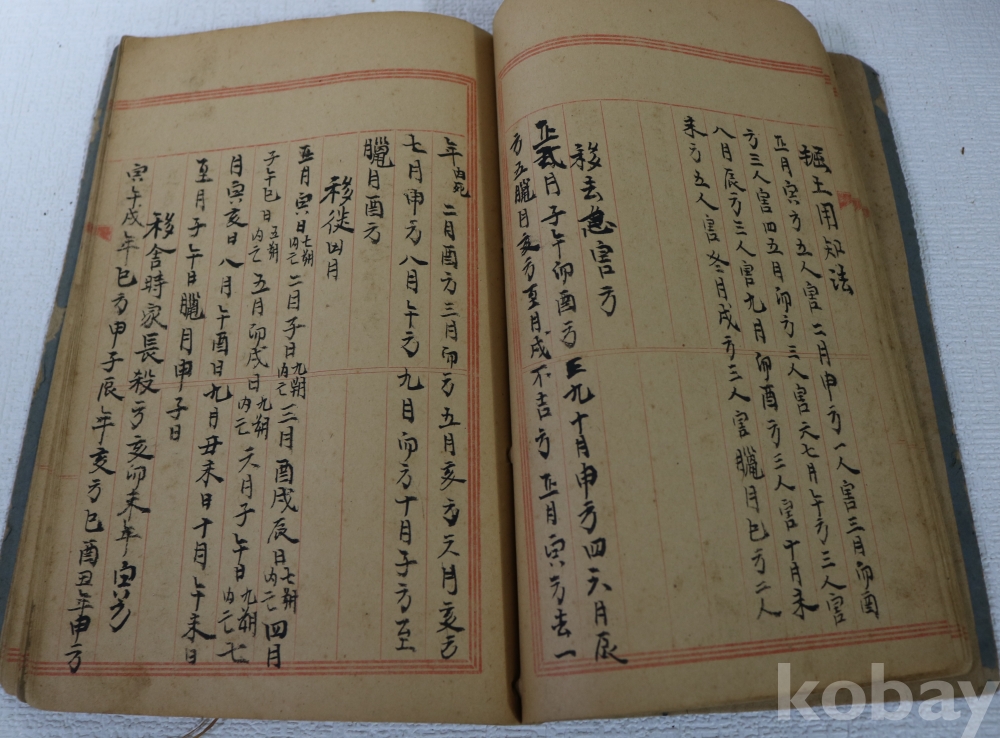 掘土用知法
正月寅方五人害二月申方一人害三月卯酉
方三人害四五月卯方三人害六七月午方三人害
八月辰方三人害九月卯酉方三人害十月未
未方五人害冬月戌方三人害臘月巳方二人
移去急害方
正貳月子午卯酉方三九十月申方四六月辰
方五臘月亥方至月戌不吉方正月寅方去一
年內死二月酉方三月卯方五月亥方六月亥方
七月申方八月午方九月卯方十月子方至
臘月酉方
移徙凶月
正月寅日七朔內亡二月子日九朔內亡三月酉戌辰日七朔內亡四月
子午巳日五朔內亡五月卯戌日九朔內亡六月子午日九朔內亡七
月寅亥日八月午酉日九月丑未日十月午未日
至月子午日臘月申子日
移舍時家長殺方亥卯未年寅方
寅午戌年巳方申子辰年亥方巳酉丑年申方
kobay